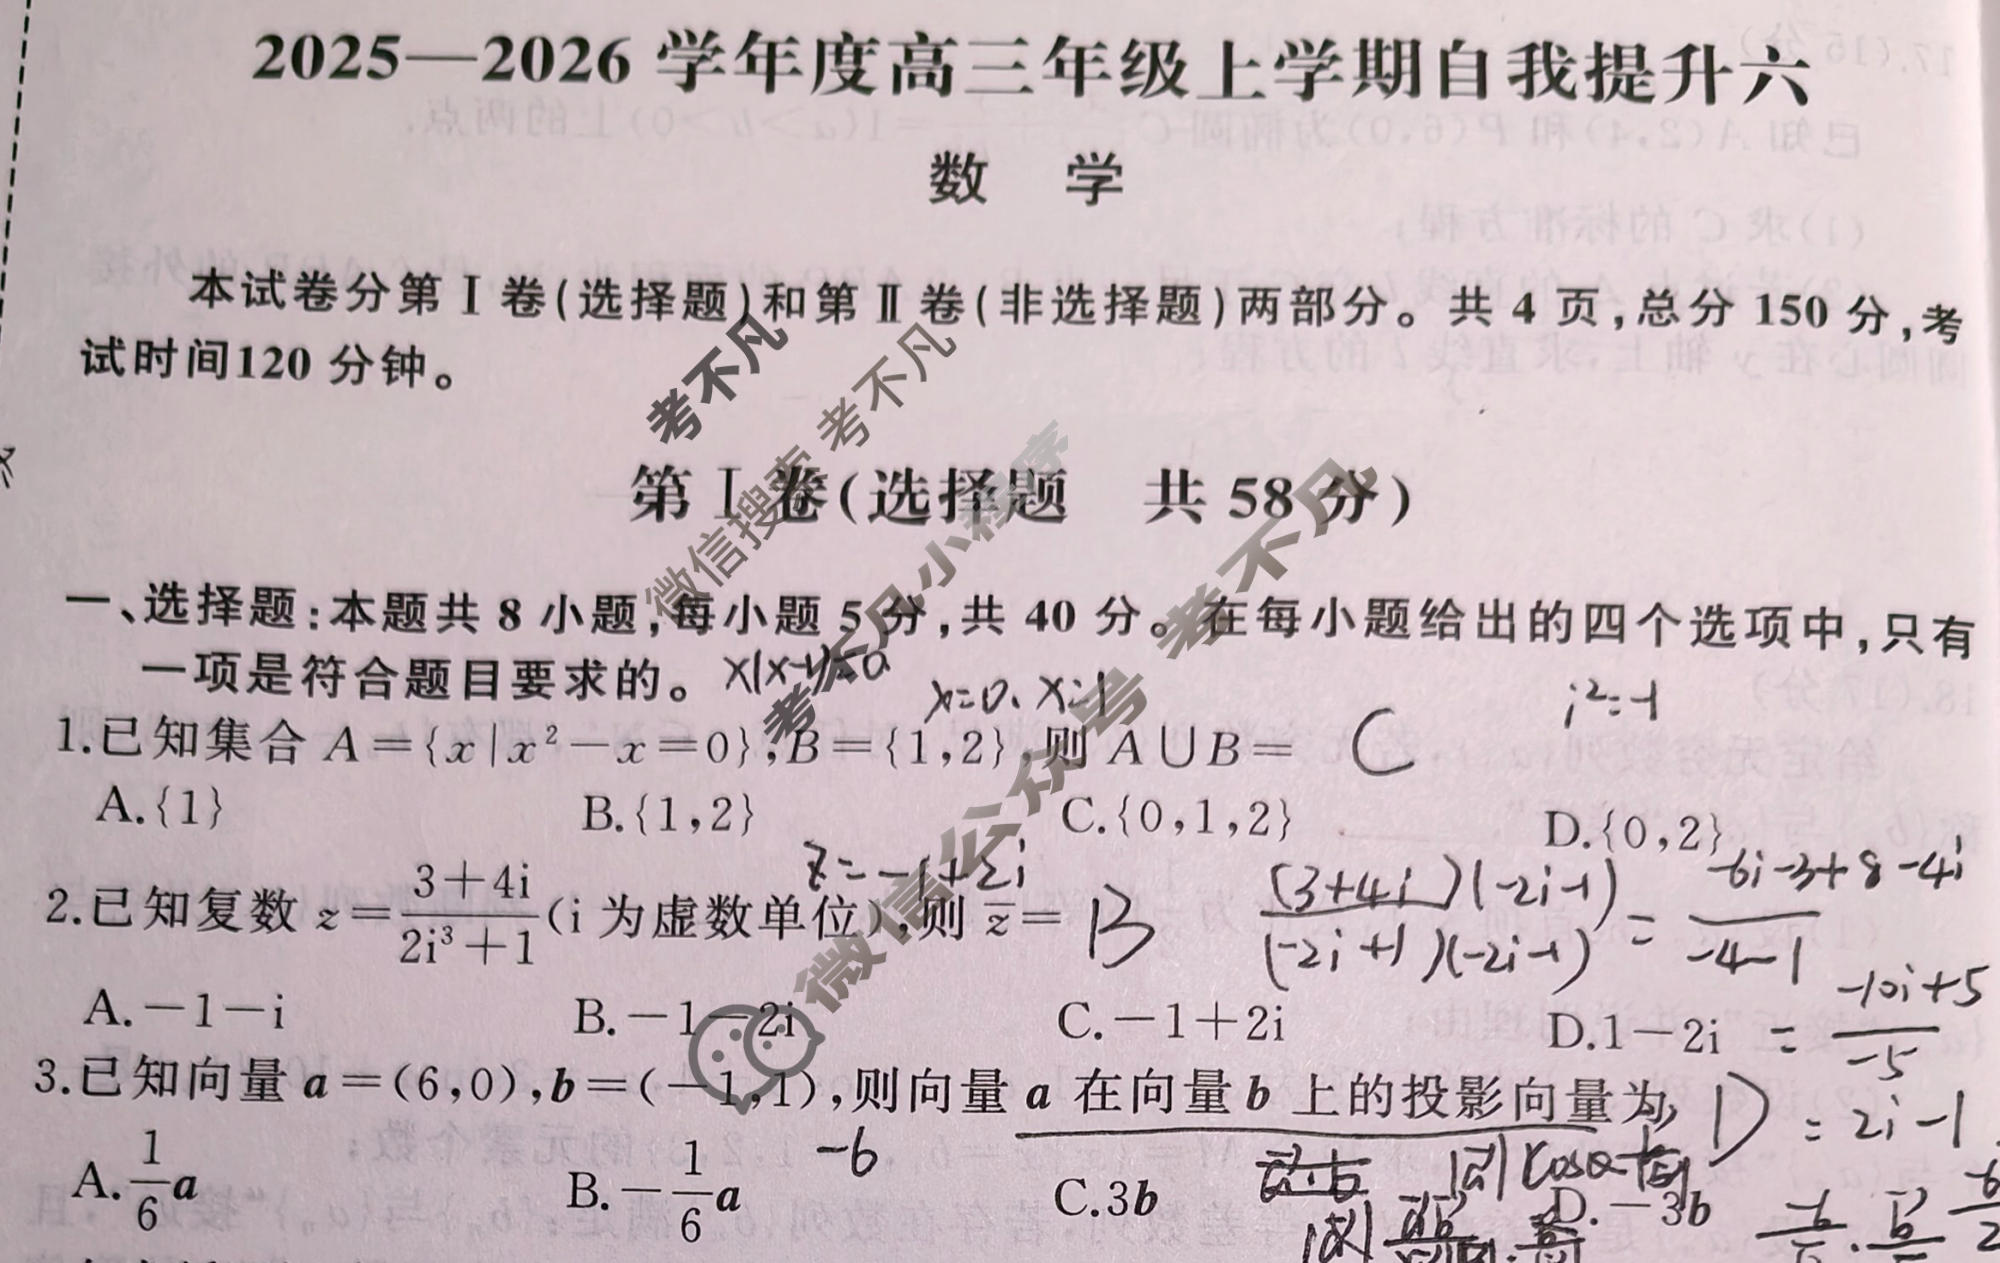 2025—2026 学年度高三年级上学期自我提升六
数 学
本试卷分第Ⅰ卷(选择题)和第Ⅱ卷(非选择题)两部分。共 4 页,总分 150 分,考
试时间120 分钟。
第Ⅰ卷(选择题 共 58 分)
一、选择题:本题共 8 小题,每小题 5 分,共 40 分。在每小题给出的四个选项中,只有
一项是符合题目要求的。
x(x-1)=0
x=0. x=1
i²=-1
1.已知集合 A={x|x²-x=0},B={1,2},则 A∪B= C
A.{1} B.{1,2} C.{0,1,2} D.{0,2}
z=-1+2i
2.已知复数 z=\frac{3+4i}{2i³+1}(i 为虚数单位),则 \overline{z}= B
\frac{(3+4i)(-2i-1)}{(-2i+1)(-2i-1)} = \frac{-6i-3+8-4i}{-4-1}
= \frac{-10i+5}{-5}
= 2i-1
A.-1-i B.-1-2i C.-1+2i D.1-2i
3.已知向量 a=(6,0),b=(-1,1),则向量 a 在向量 b 上的投影向量为 D
-6
A.\frac{1}{6}a B.-\frac{1}{6}a C.3b D.-3b
考不凡
微信搜索 考不凡
考不凡小程序
微信公众号 考不凡